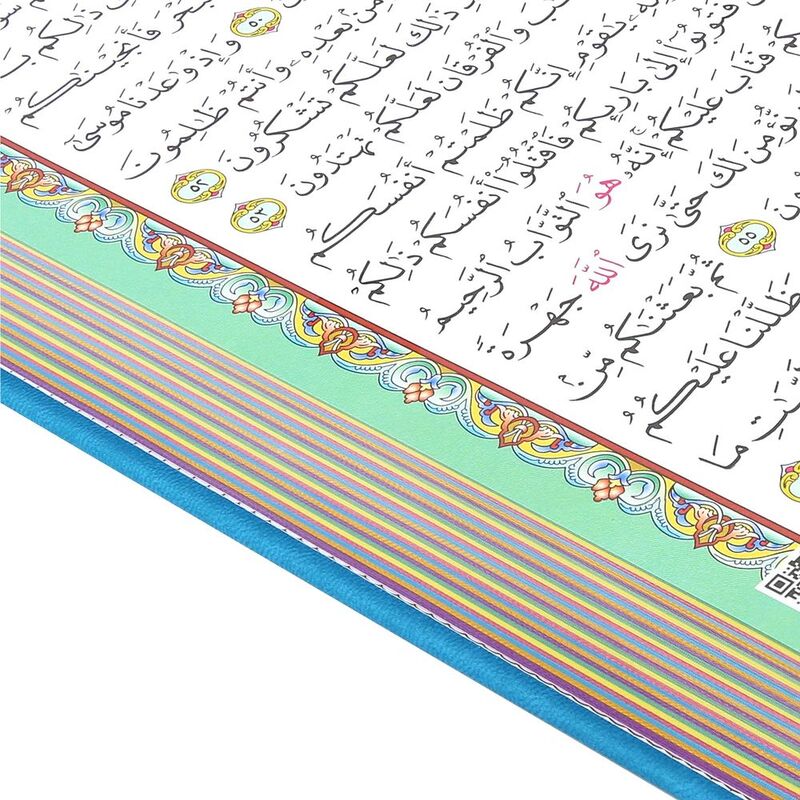 ذَٰلِكُم
فَأَنجَيْنَٰكُمْ
٥٠ وَإِذْ وَٰعَدْنَا مُوسَىٰٓ
مِنۢ بَعْدِهِۦ وَأَنتُمْ ظَٰلِمُونَ
ذَٰلِكَ لَعَلَّكُمْ تَشْكُرُونَ ٥٢
وَٱلْفُرْقَانَ لَعَلَّكُمْ تَهْتَدُونَ ٥٣
يَٰقَوْمِ إِنَّكُمْ ظَلَمْتُمْ أَنفُسَكُم
فَتُوبُوٓا۟ إِلَىٰ بَارِئِكُمْ فَٱقْتُلُوٓا۟ أَنفُسَكُمْ ذَٰلِكُمْ
فَتَابَ عَلَيْكُمْ إِنَّهُۥ هُوَ ٱلتَّوَّابُ ٱلرَّحِيمُ
نُّؤْمِنَ لَكَ حَتَّىٰ نَرَى ٱللَّهَ جَهْرَةً
٥٥ ثُمَّ بَعَثْنَٰكُم مِّنۢ
ظَلَّلْنَا عَلَيْكُمُ
مَا